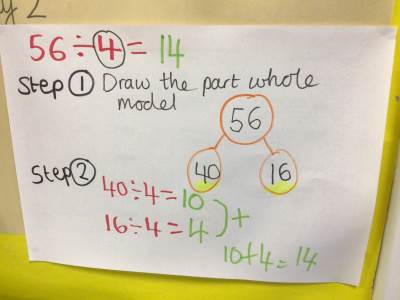 y 2
56 ÷ 4 = 14
Step 1 Draw the part whole
model
56
40 16
Step 2
40 ÷ 4 = 10
16 ÷ 4 = 4
+
10 + 4 = 14